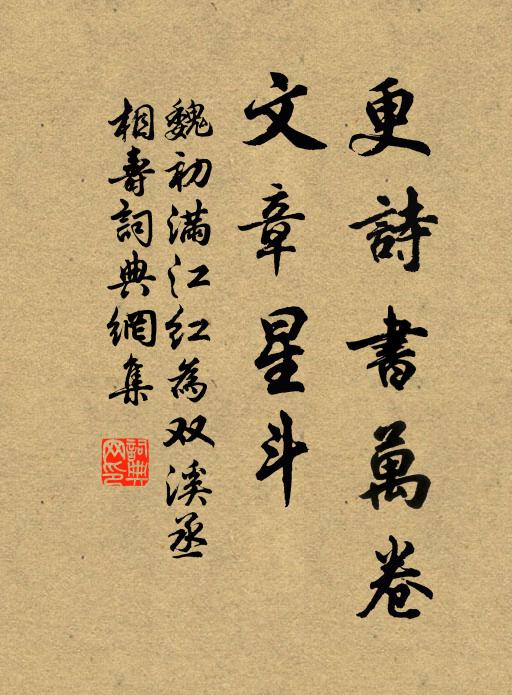 更詩書萬卷
文章星斗
魏初滿江紅為双溪丞
相壽詞典網集
詞典網印